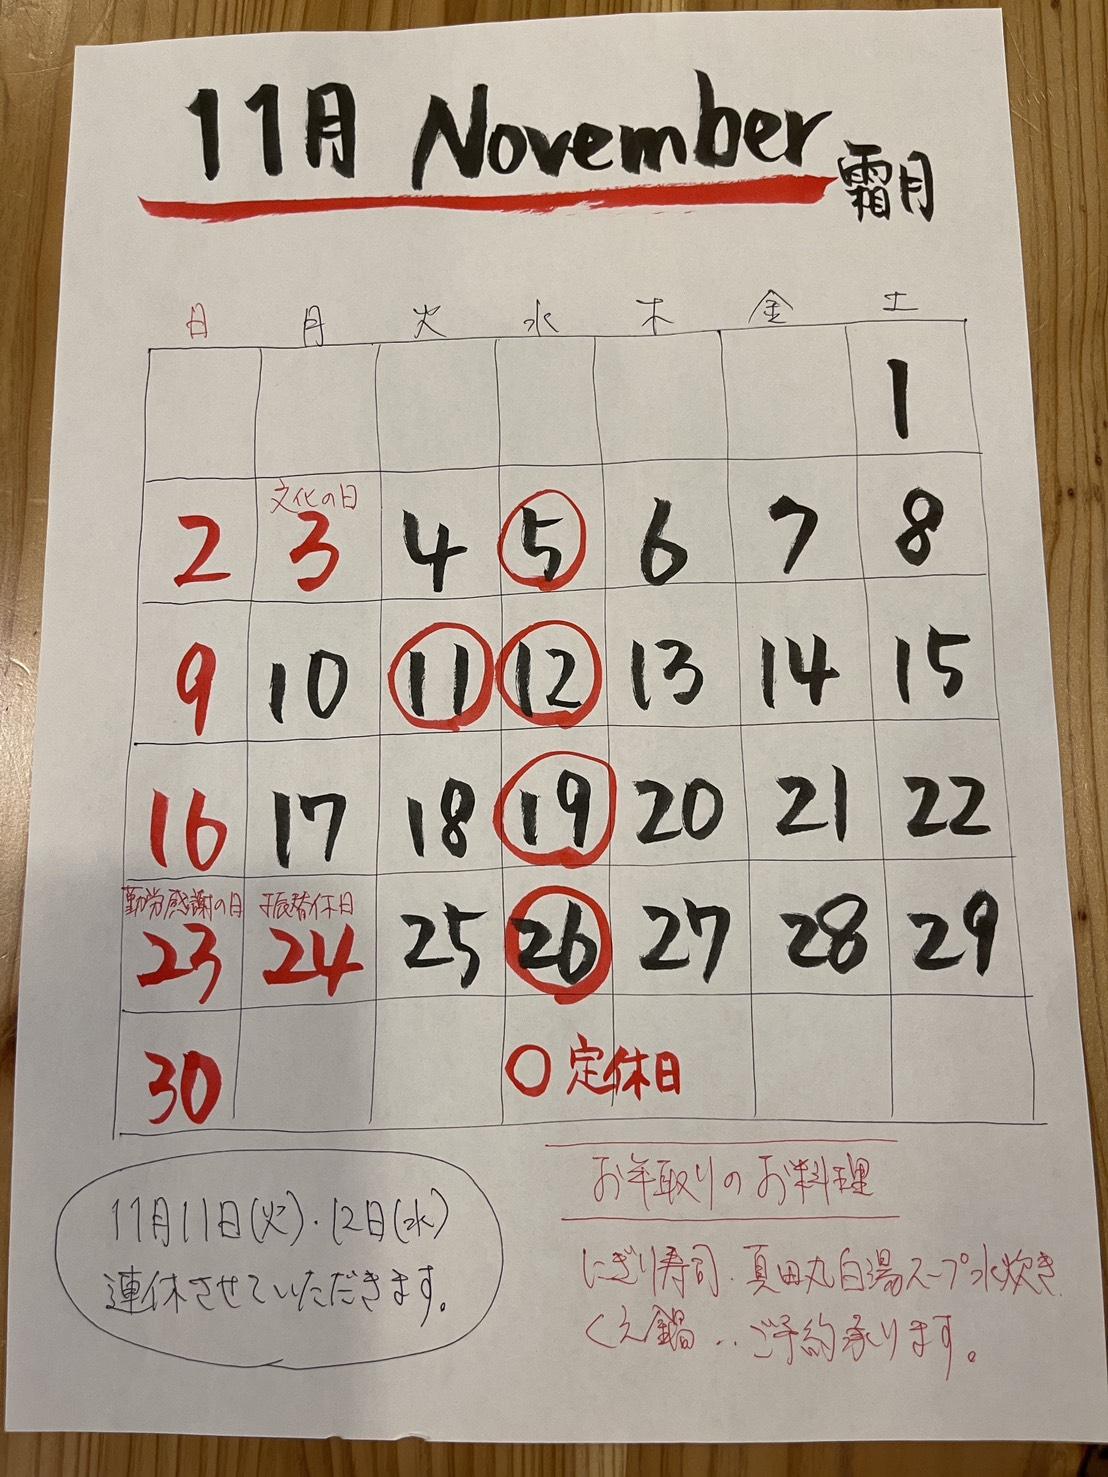 11月 November 霜月
日 月 火 水 木 金 土
1
文化の日
2 3 4 5 6 7 8
9 10 11 12 13 14 15
16 17 18 19 20 21 22
勤労感謝の日 振替休日
23 24 25 26 27 28 29
30 ○定休日
11月11日(火)・12日(水)
連休させていただきます。
お年取りのお料理
にぎり寿司、真田丸白湯スープ水炊き、
くえ鍋‥ご予約承ります。